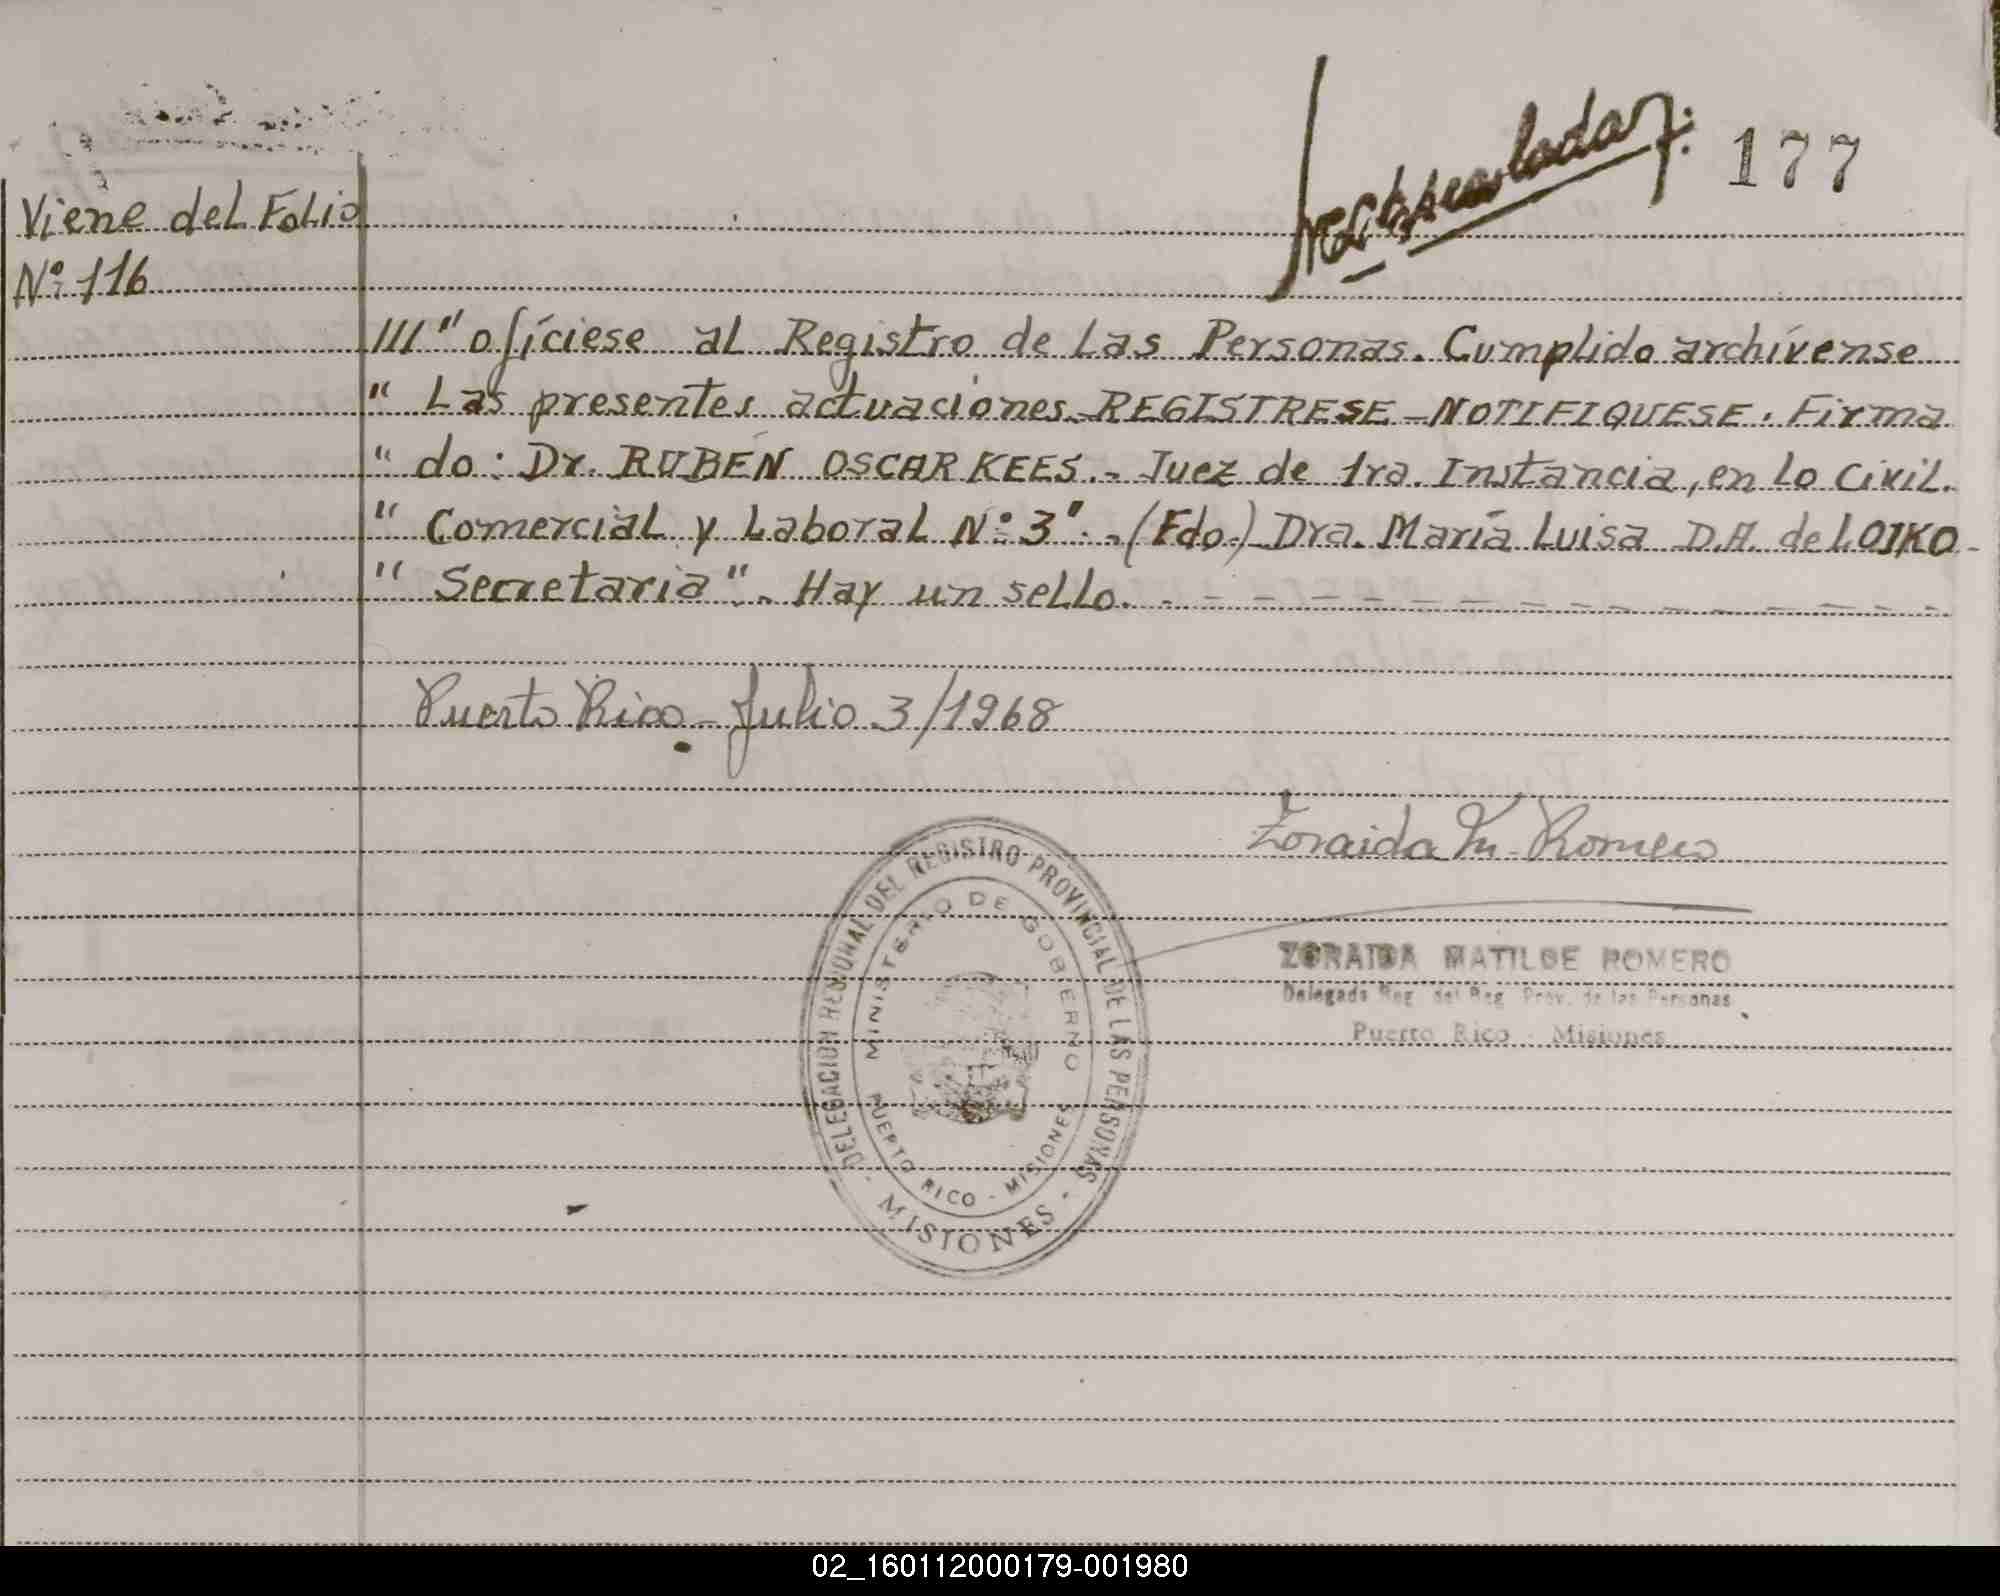 177
Viene del Folio
Nº 116
III" ofíciese al Registro de Las Personas. Cumplido archívense
" Las presentes actuaciones. REGISTRESE - NOTIFIQUESE. Firma
" do: Dr. RUBÉN OSCAR KEES. - Juez de 1ra. Instancia, en lo Civil.
" Comercial y Laboral Nº 3". - (Fdo.) Dra. María Luisa D.A. de LOIKO -
" Secretaria". - Hay un sello. - - - - - - - - - - - - - - - -
Puerto Rico - Julio 3/1968
Zoraida M. Romero
ZORAIDA MATILDE ROMERO
Delegada Reg. del Reg. Prov. de las Personas
Puerto Rico - Misiones
DELEGACION REGIONAL DEL REGISTRO PROVINCIAL DE LAS PERSONAS
- MISIONES -
MINISTERIO DE GOBIERNO
PUERTO RICO - MISIONES
02_160112000179-001980